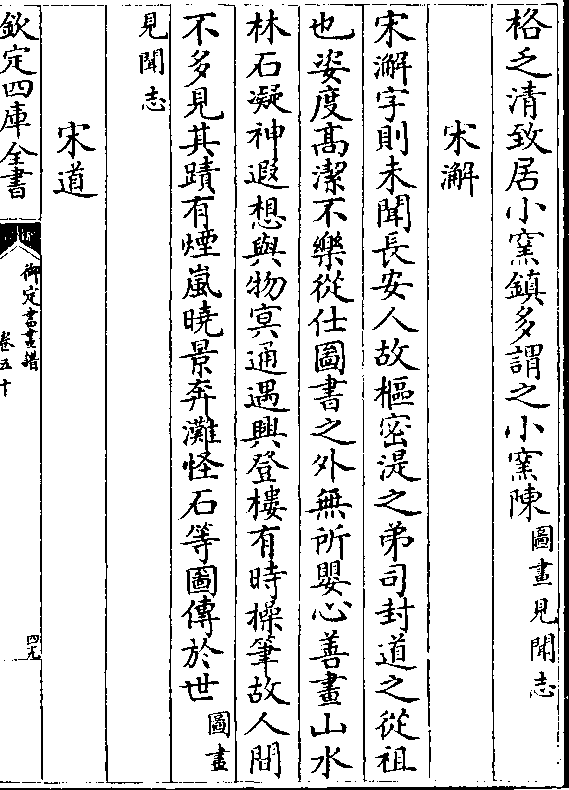 格乏清致居小窯鎮多謂之小窯陳圖畫見聞志
宋澥
宋澥字則未聞長安人故樞密湜之弟司封道之從祖
也姿度髙潔不樂從仕圖書之外無所嬰心善畫山水
林石凝神遐想與物㝠通遇興登樓有時操筆故人間
不多見其蹟有煙嵐曉景奔灘怪石等圖傳於世圖畫
見聞志
宋道
欽定四庫全書
御定書畫譜
卷五十
四九